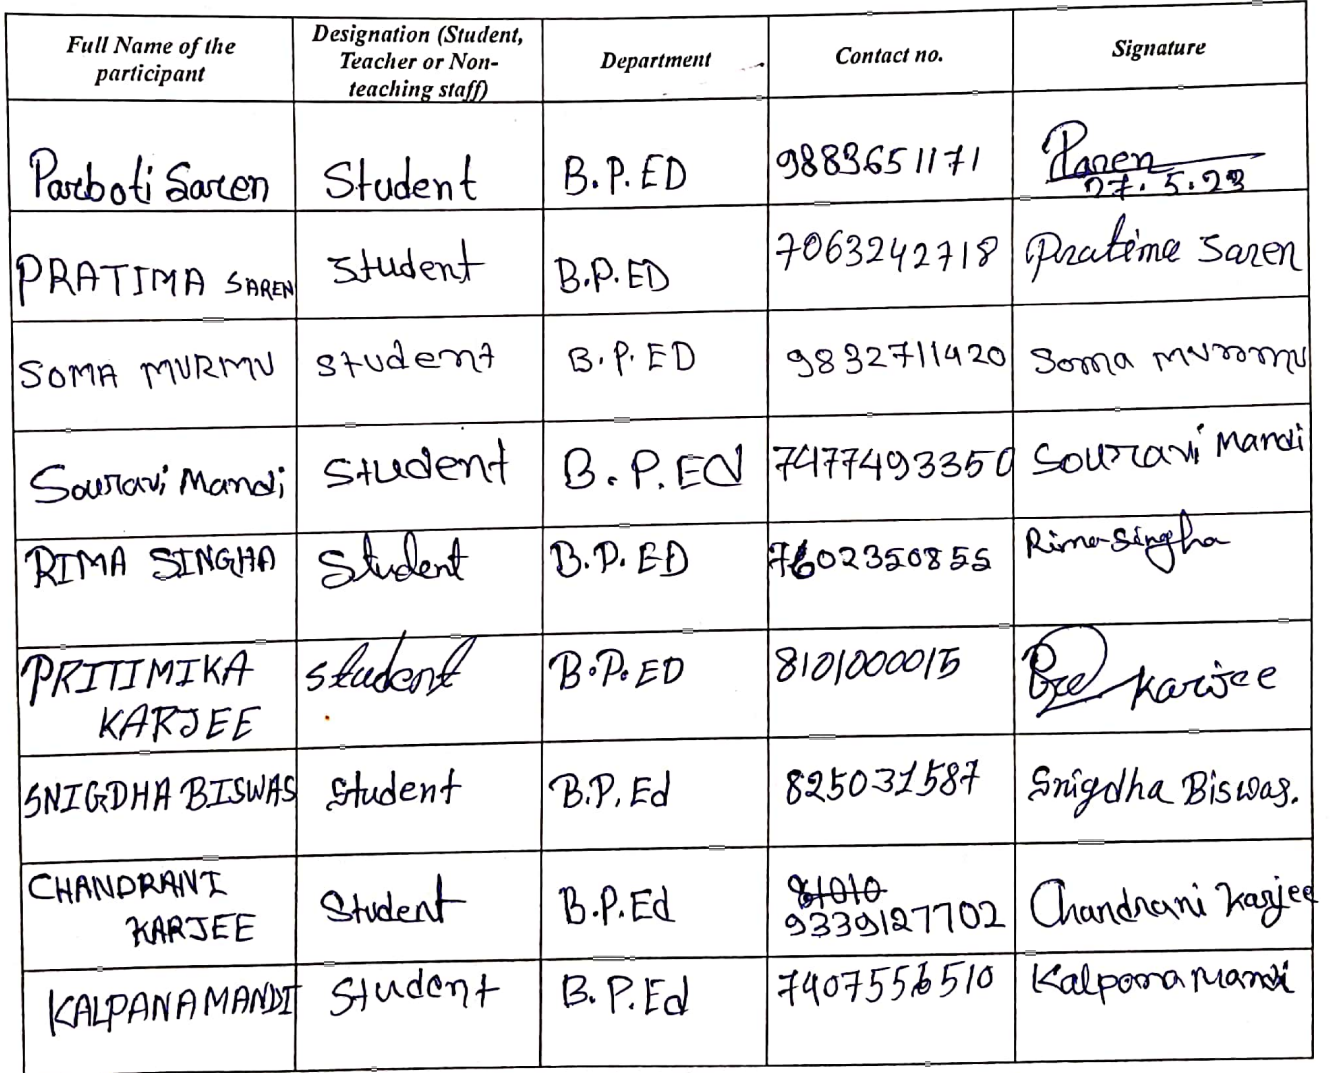 Full Name of the participant | Designation (Student, Teacher or Non-teaching staff) | Department | Contact no. | Signature
Parboti Saren | Student | B.P.ED | 9883651171 | Psaren 27.5.23
PRATIMA SAREN | Student | B.P.ED | 7063242718 | Pratima Saren
SOMA MURMU | Student | B.P.ED | 9832711420 | Soma Murmu
Souravi Mandi | Student | B.P.Ed | 7477493350 | Souravi Mandi
RIMA SINGHA | Student | B.P.ED | 7602350855 | Rima Singha
PRITIMIKA KARJEE | student | B.P.ED | 8101000015 | Karjee
SNIGDHA BISWAS | Student | B.P.Ed | 825031587 | Snigdha Biswas.
CHANDRANI KARJEE | Student | B.P.Ed | 81010 9339127702 | Chandrani Karjee
KALPANA MANDI | Student | B.P.Ed | 7407556510 | Kalpana Mandi